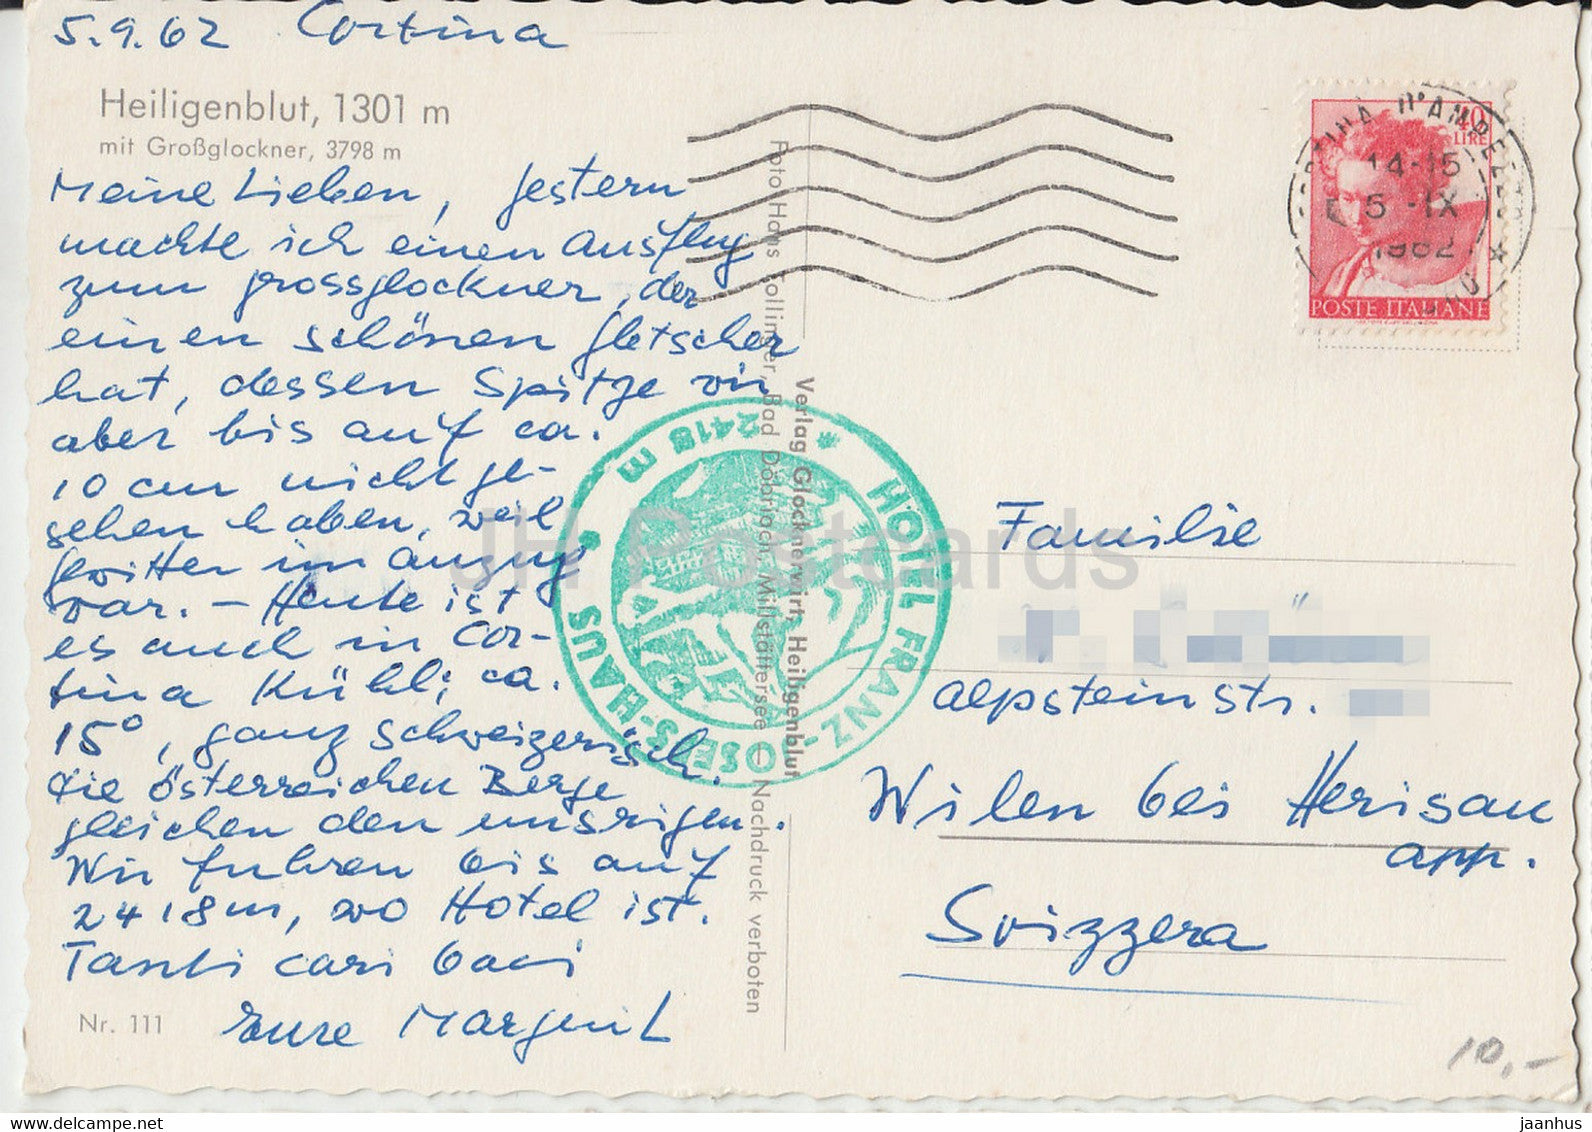 5.9.62 Cortina
Heiligenblut, 1301 m
mit Großglockner, 3798 m
Meine Lieben, gestern
machte ich einen Ausflug
zum Grossglockner, der
einen schönen Gletscher
hat, dessen Spitze wir
aber bis auf ca.
10 cm nicht ge-
sehen haben, weil
Gewitter im Anzug
war. – Heute ist
es auch in Cor-
tina Kühl; ca.
15°, ganz schweizerisch.
Die österreichen Berge
gleichen den unsrigen.
Wir fuhren bis auf
2418m, wo Hotel ist.
Tanti cari baci
Eure Margrit
Nr. 111
Foto Hans Bad Döbriach, Millstättersee – Nachdruck verboten
Verlag Glocknerwirt, Heiligenblut
HOTEL FRANZ-JOSEFS-HAUS
* 2418 m *
CORTINA D'AMPEZZO
14-15
5-IX
1962
40
LIRE
POSTE ITALIANE
Familie
Alpsteinstr.
Wilen bei Herisau
App.
Svizzera
10,-
JH Postcards
jaanhus